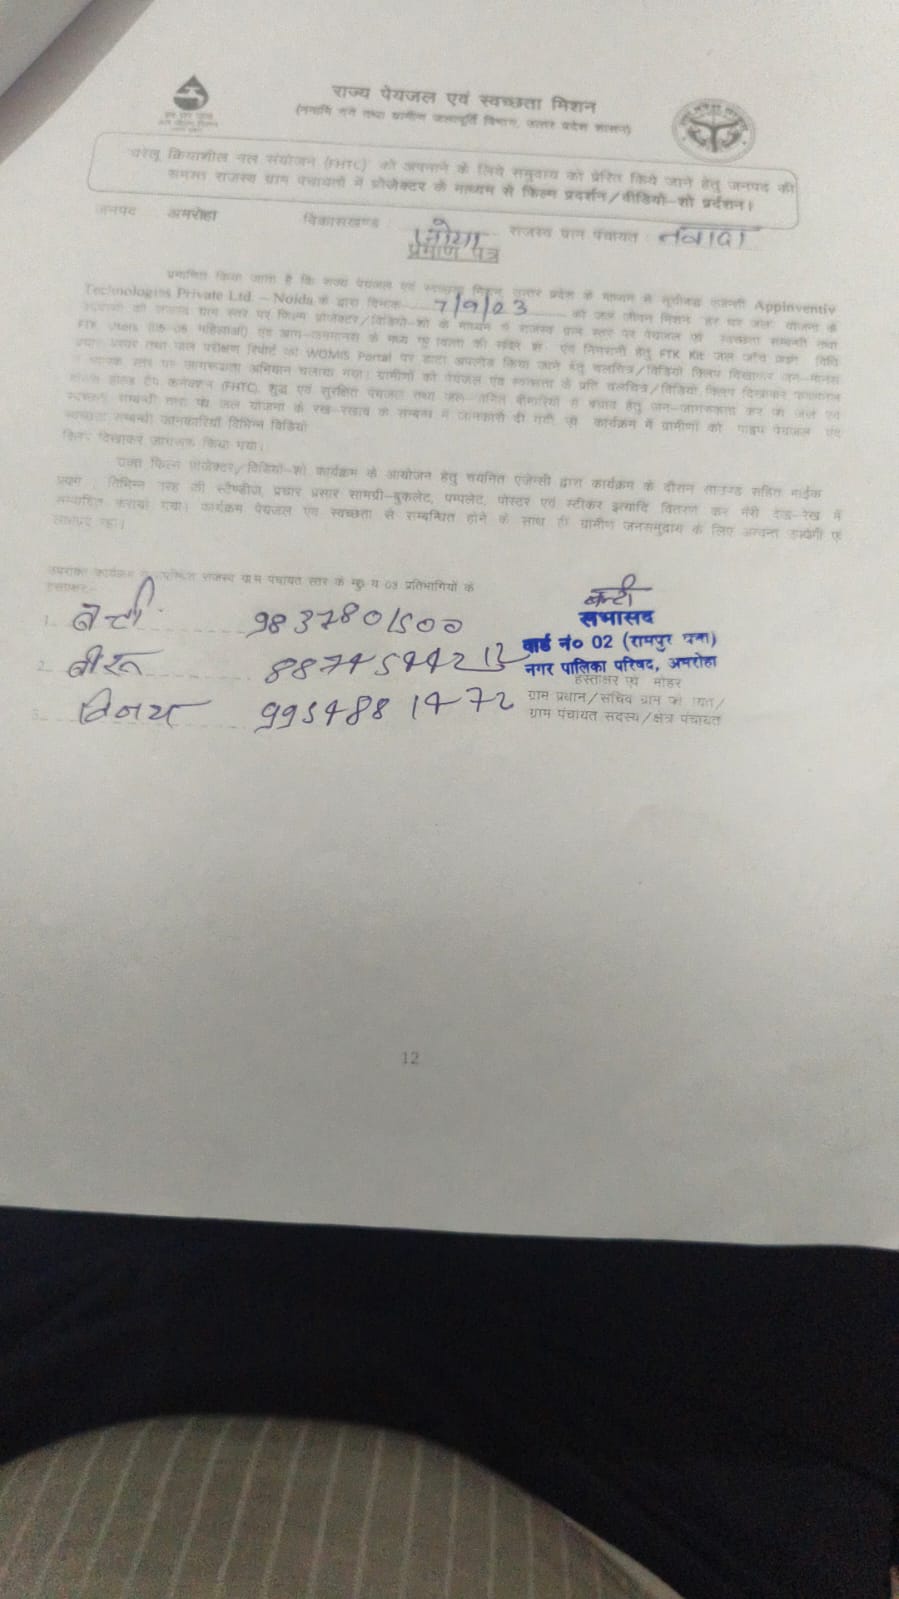 राज्य पेयजल एवं स्वच्छता मिशन
(नमामि गंगे तथा ग्रामीण जलापूर्ति विभाग, उत्तर प्रदेश शासन)
घरेलू क्रियाशील नल संयोजन (FHTC) को अपनाने के लिये समुदाय को प्रेरित किये जाने हेतु जनपद की
समस्त राजस्व ग्राम पंचायतों में प्रोजेक्टर के माध्यम से फिल्म प्रदर्शन/वीडियो-शो प्रर्दशन।
जनपद अमरोहा विकासखण्ड जोया राजस्व ग्राम पंचायत नवादा
प्रमाण पत्र
प्रमाणित किया जाता है कि राज्य पेयजल एवं स्वच्छता मिशन, उत्तर प्रदेश के माध्यम से सूचीबद्ध एजेन्सी Appinventiv
Technologies Private Ltd. – Noida के द्वारा दिनांक 7/9/23 को जल जीवन मिशन हर घर जल योजना के
ग्राम स्तर पर फिल्म प्रोजेक्टर/विडियो-शो के माध्यम से राजस्व ग्राम स्तर पर पेयजल एवं स्वच्छता सम्बन्धी तथा
FTK Users महिलाओं) एवं के मध्य एवं निगरानी हेतु FTK Kit जल जाँच विधि
तथा जल परीक्षण रिपोर्ट का WQMIS Portal पर डाटा अपलोड किया जाने हेतु चलचित्र/विडियो क्लिप दिखाकर जन-मानस
स्तर पर जागरूकता अभियान चलाया गया। ग्रामीणों को पेयजल एवं स्वच्छता के प्रति चलचित्र/विडियो क्लिप दिखाकर
टैप कनेक्शन (FHTC, शुद्ध एवं सुरक्षित पेयजल तथा जल-जनित बीमारियों से बचाव हेतु जन-जागरूकता कर जल एवं
स्वच्छता सम्बन्धी तथा जल योजना के रख-रखाव के सम्बन्ध में जानकारी दी गयी कार्यक्रम में ग्रामीणों को पाइप पेयजल एवं
स्वच्छता सम्बन्धी जानकारियाँ विभिन्न विडियो
क्लिप दिखाकर जागरूक किया गया।
उक्त फिल्म प्रोजेक्टर/विडियो-शो कार्यक्रम के आयोजन हेतु चयनित एजेन्सी द्वारा कार्यक्रम के दौरान साउण्ड सहित माईक
विभिन्न तरह की स्टैण्डीज, प्रचार प्रसार सामग्री-बुकलेट, पम्पलेट, पोस्टर एवं स्टीकर इत्यादि वितरण कर मेरी देख-रेख में
सम्पादित कराया गया। कार्यक्रम पेयजल एवं स्वच्छता से सम्बन्धित होने के साथ ही ग्रामीण जनसमुदाय के लिए अत्यन्त उपयोगी एवं
लाभप्रद रहा।
उपरोक्त कार्यक्रम राजस्व ग्राम पंचायत स्तर के 03 प्रतिभागियों के
हस्ताक्षर:-
1. बन्टी 9837801500
2. वीरू
3. विनय
बन्टी
सभासद
वार्ड नं० 02 (रामपुर घना)
नगर पालिका परिषद, अमरोहा
हस्ताक्षर एवं मोहर
ग्राम प्रधान/सचिव ग्राम पंचायत/
ग्राम पंचायत सदस्य/क्षेत्र पंचायत
12